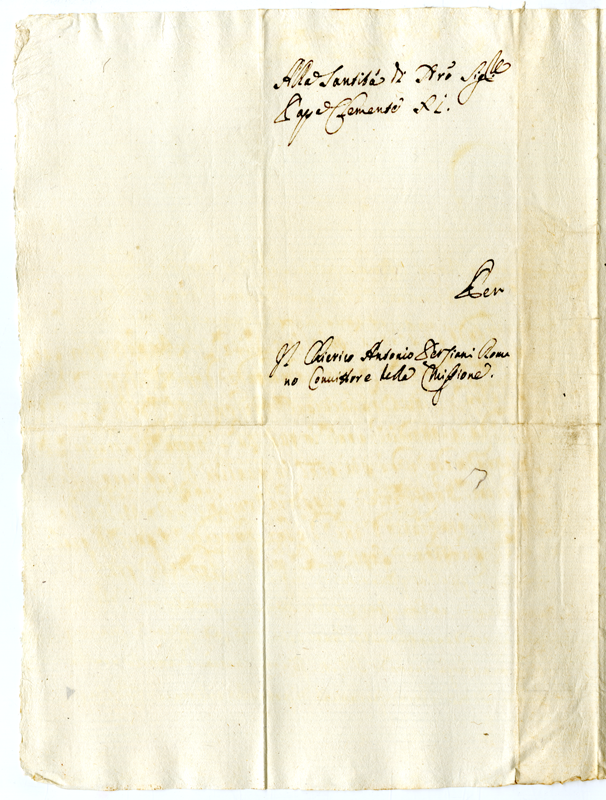 Alla Santità di Nrõ Sigre
Papa Clemente XI.
Per
Il Chierico Antonio Persiani Roma
no Convittore della Missione.